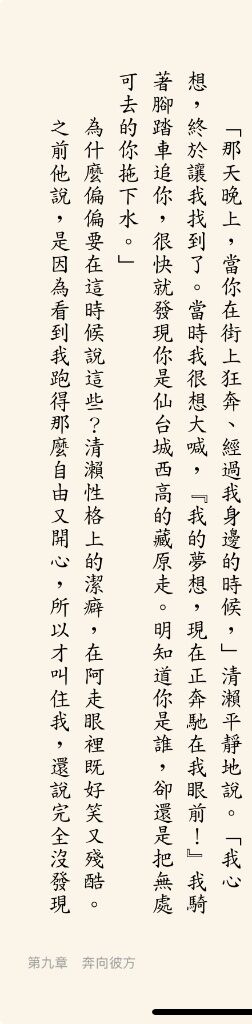 「那天晚上，當你在街上狂奔、經過我身邊的時候，」清瀨平靜地說。「我心
想，終於讓我找到了。當時我很想大喊，『我的夢想，現在正奔馳在我眼前！』我騎
著腳踏車追你，很快就發現你是仙台城西高的藏原走。明知道你是誰，卻還是把無處
可去的你拖下水。」
為什麼偏偏要在這時候說這些？清瀨性格上的潔癖，在阿走眼裡既好笑又殘酷。
之前他說，是因為看到我跑得那麼自由又開心，所以才叫住我，還說完全沒發現
第九章　奔向彼方